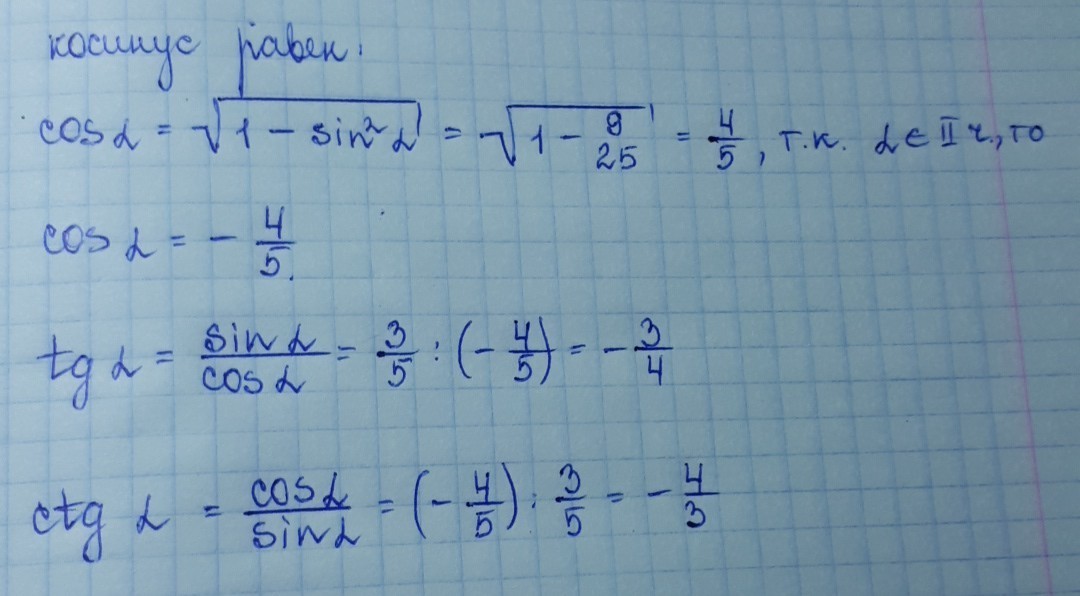 косинус равен:
cos α = √(1 - sin² α) = √(1 - 9/25) = 4/5, т.к. α ∈ II ч., то
cos α = - 4/5.
tg α = sin α/cos α = 3/5 : (- 4/5) = - 3/4
ctg α = cos α/sin α = (- 4/5) : 3/5 = - 4/3